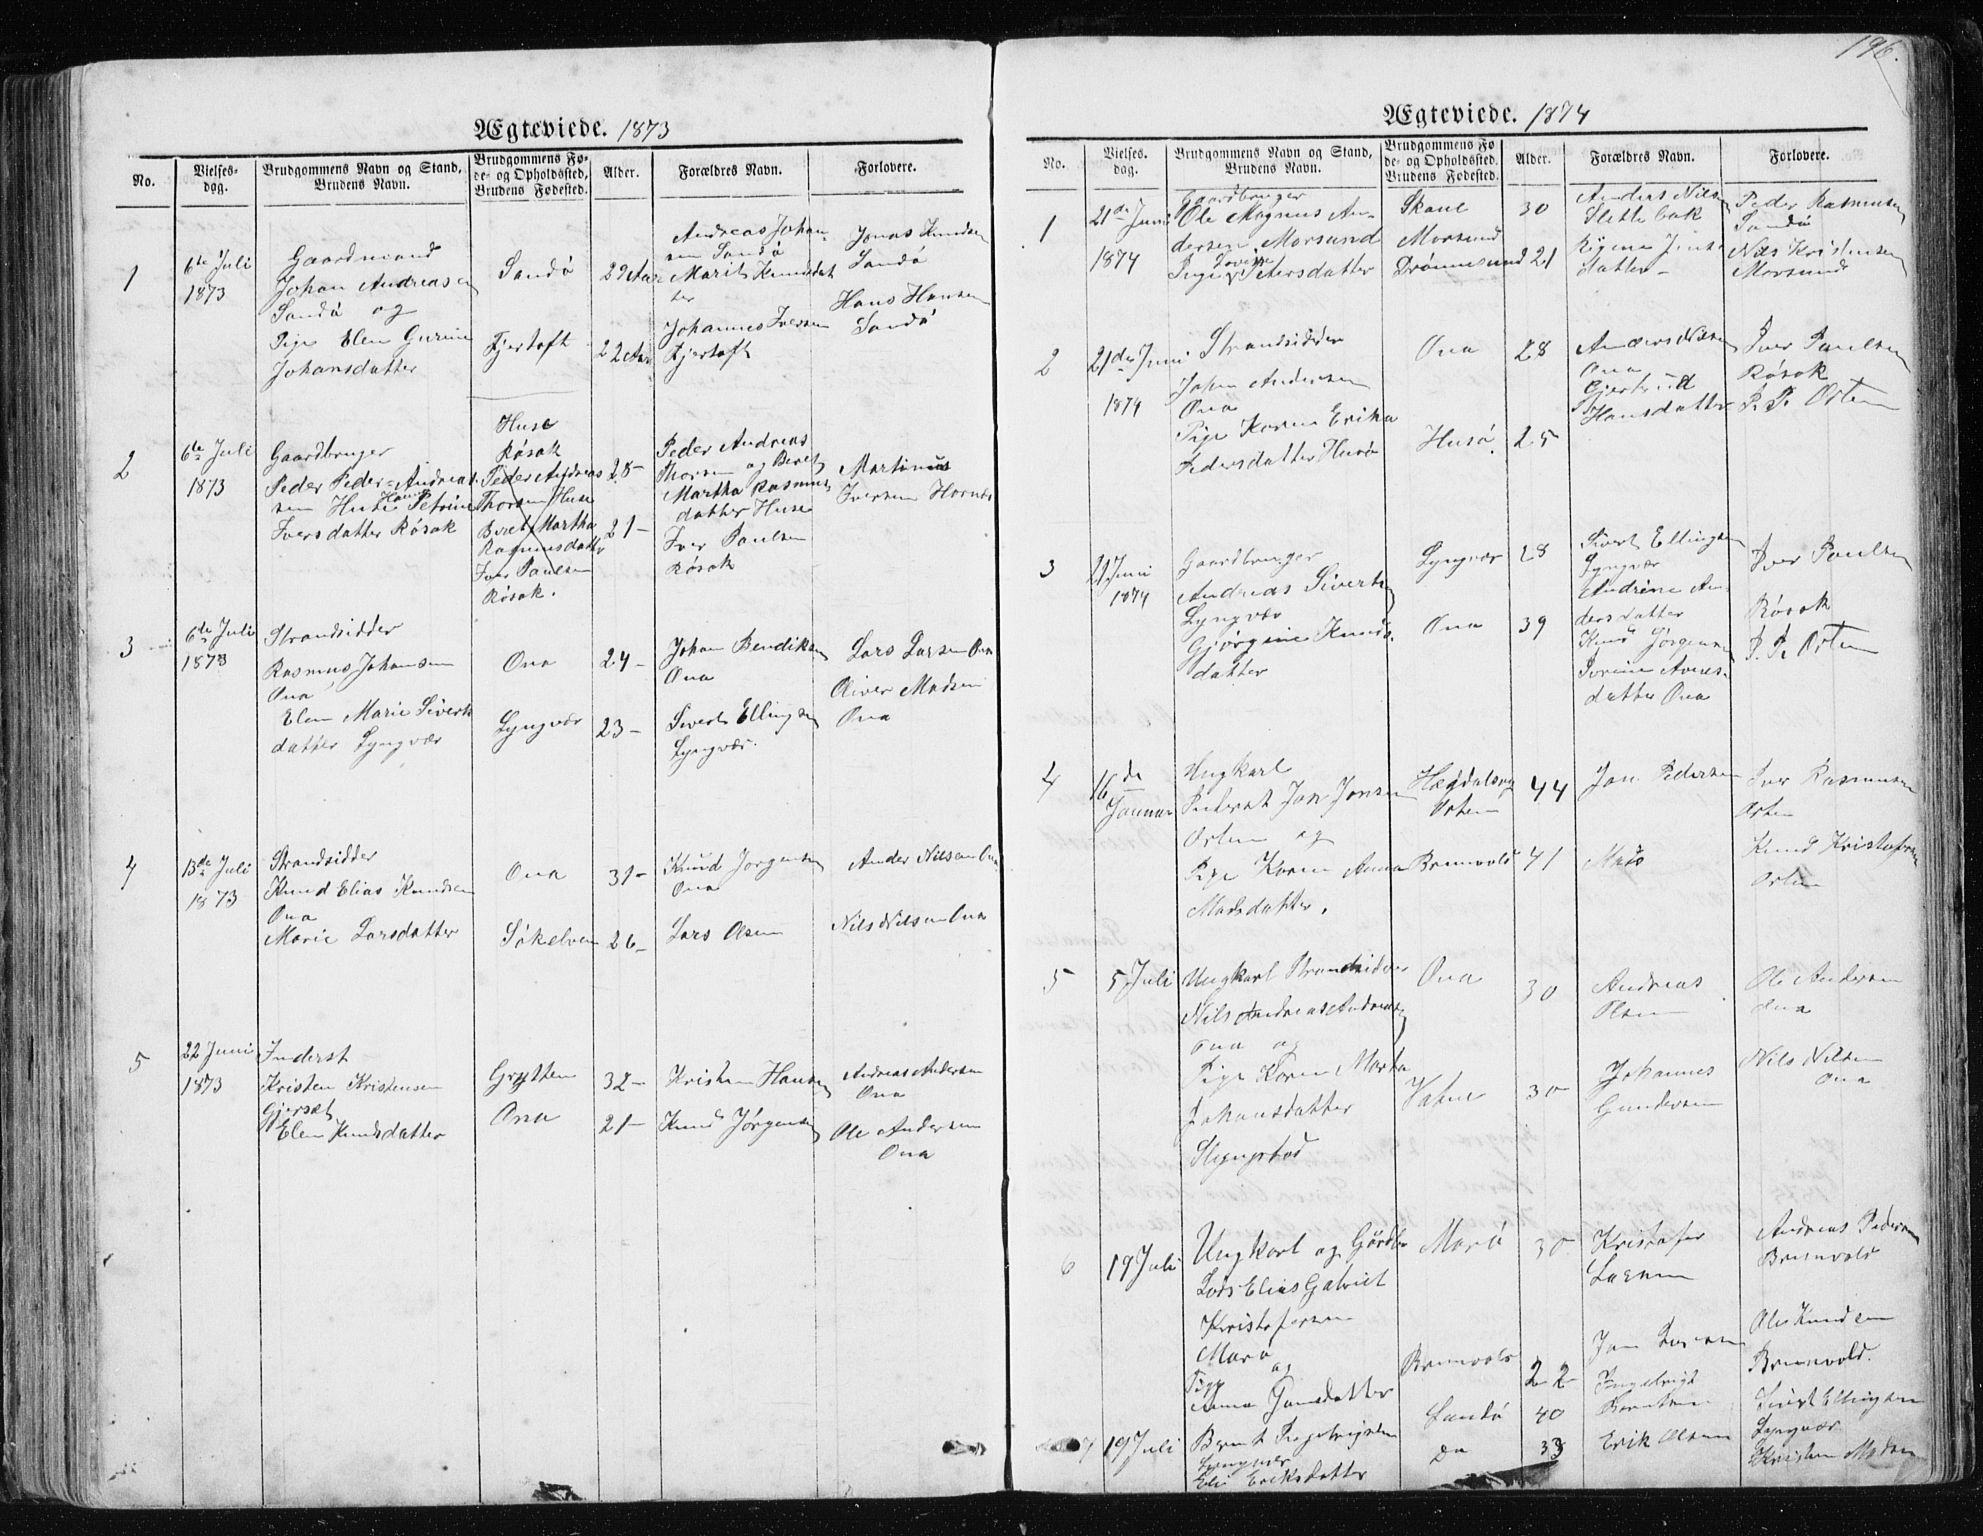 Ægteviede. 1873
No.
Vielses-
dag.
Brudgommens Navn og Stand,
Brudens Navn.
Brudgommens Fø-
de- og Opholdssted,
Brudens Fødested.
Alder.
Forældres Navn.
Forlovere.
1
6te Juli
1873
Gaardmand
Johan Andreasen
Sandø og
Pige Elen Gurine
Johansdatter
Sandø
Fjertoft
22 Aar
Andreas Johan-
sen Sandø
Marit Knudsdat
ter
Johannes Iversen
Fjertoft
Jonas Knudsen
Sandø
Hans Hansen
Sandø
2
6te Juli
1873
Gaardbruger
Peder Peder-Andreas-
sen Huse Petrine
Iversdatter Røsok
Huse
Røsok
Peder Andreas
Thorsen Huse
Beret Martha
Rasmusdatter
Iver Paulsen
Røsok.
28-
21-
Peder Andreas
Thorsen og Beret
Martha Rasmus-
datter Huse
Iver Paulsen
Røsok
Martinus
Iversen Hornes
3
6te Juli
1873
Strandsidder
Rasmus Johansen
Ona
Elen Marie Siverts
datter Lyngvær
Ona
Lyngvær
24-
23-
Johan Bendiksen
Ona
Sivert Ellingsen
Lyngvær.
Lars Larsen Ona
Oliver Madsen
Ona
4
13de Juli
1873
Strandsidder
Knud Elias Knudsen
Ona
Marie Larsdatter
Ona
Søkelven
31-
26-
Knud Jørgensen
Ona
Lars Olsen
Ander Nilsen Ona
Nils Nilsen Ona
5
22 Juni
1873
Inderst
Kristen Kristensen
Gjerset
Elen Knudsdatter
Grytten
Ona
32-
21-
Kristen Hansen
Knud Jørgensen
Andreas Andersen
Ona
Ole Andersen
Ona
196.
Ægteviede. 1874
No.
Vielses-
dag.
Brudgommens Navn og Stand,
Brudens Navn.
Brudgommens Fø
de- og Opholdssted,
Brudens Fødested.
Alder.
Forældres Navn.
Forlovere.
1
21de Juni
1874
Gaardbruger
Ole Magnus An-
dersen Morsund
Pige Petersdatter
Morsund
Drønnesund
30
21
Andreas Nilsen
Slettebak
datter
Peder Rasmussen
Sandø
Nils Kristensen
Morsund
2
21de Juni
1874
Strandsidder
John Andersen
Ona
Pige Karen Erika
Pedersdatter Husø
Ona
Husø.
28
25
Anders Nilsen
Ona
Gjertrud
Hansdatter
Iver Paulsen
Røsok
P. P. Orten
3
21 Juni
1874
Gaardbruger
Andreas Sivertsen
Lyngvær
Gjørgine Knuds-
datter
Lyngvær
Ona
28
39
Sivert Ellingsen
Lyngvær
Andrine An-
dersdatter
Knud Jørgensen
datter Ona
Iver Paulsen
Røsok
P. P. Orten
4
16de
Januar
Ungkarl
Inderst Jon Jonsen
Orten og
Pige Karen Anna
Madsdatter.
Orten
Brunvold
44
41
Jon Pedersen
Mads
Iver Rasmussen
Orten
Knud Kristofersen
Orten
5
5 Juli
Ungkarl Strandsidder
Nils Andreas Andreasen
Ona og
Pige Karen Marta
Johansdatter
Slyngstad
Ona
Vatne
30
30
Andreas
Olsen
Johannes
Gundersen
Ole Andersen
Ona
Nils Nilsen
Ona
6
19 Juli
Ungkarl og Gårdbr
Lars Elias Gabriel
Kristofersen
Marø
og
Pige
Anna Jonsdatter
Marø
Brunvold
30
22
Kristofer
Larsen
Jon Larsen
Andreas Pedersen
Brunvold
Ole Knudsen
Brunvold.
7
19 Juli
Bernt Ingebrigtsen
Lyngvær
Eli Eriksdatter
Sandø
Do
40
33
Ingebrigt
Berntsen
Erik Olsen
Sivert Ellingsen
Lyngvær
Kristen Madsen